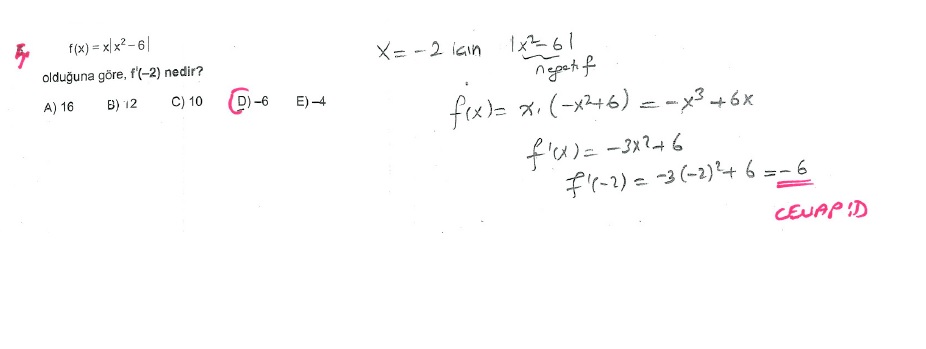 5, f(x) = x|x² – 6|
olduğuna göre, f'(–2) nedir?
A) 16 B) 12 C) 10 D) –6 E) –4
x = -2 için |x²-6|
negatif
f(x) = x. (-x²+6) = -x³ + 6x
f'(x) = -3x² + 6
f'(-2) = -3(-2)² + 6 = -6
CEVAP:D